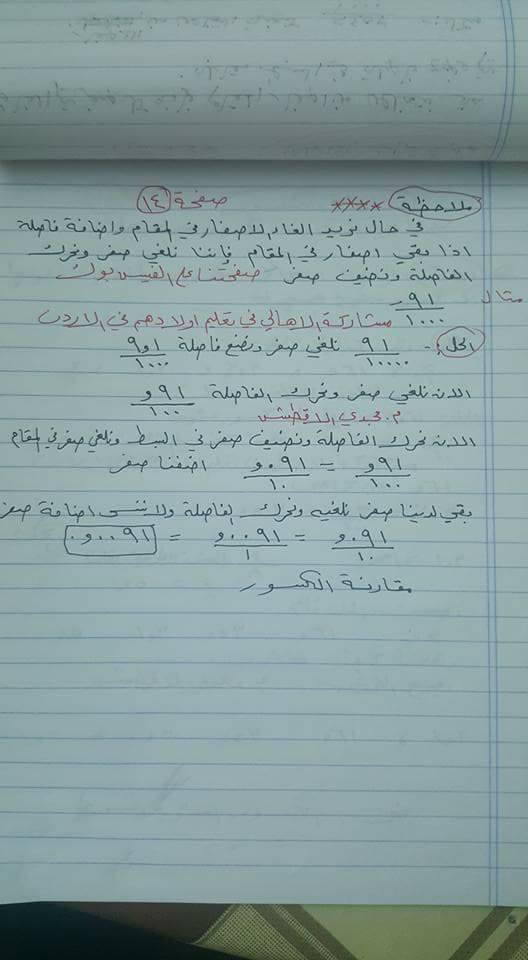 ملاحظة **** صفحة (١٤)
في حال نريد الغاء الاصفار في المقام واضافة فاصلة
اذا بقي اصفار في المقام فإننا نلغي صفر ونحرك
الفاصلة ونضيف صفر صفحتنا على الفيس بوك
مثال ٩١ / ١٠٠٠ مشاركة الاهالي في تعليم اولادهم في الاردن
الحل :- ٩١ / ١٠٠٠٠ نلغي صفر ونضع فاصلة ٩و١ / ١٠٠٠
اللان نلغي صفر ونحرك الفاصلة ٩١و / ١٠٠
م. مجدي الاقطش
اللان نحرك الفاصلة ونضيف صفر في البسط ونلغي صفر في المقام
٩١و / ١٠٠ = ٠٩١و٠ / ١٠ اضفنا صفر
بقي لدينا صفر نلغيه ونحرك الفاصلة ولا ننسى اضافة صفر
٠٩١و / ١٠ = ٠٠٩١و٠ / ١ = ٠٠٩١و٠
مقارنة الكسور